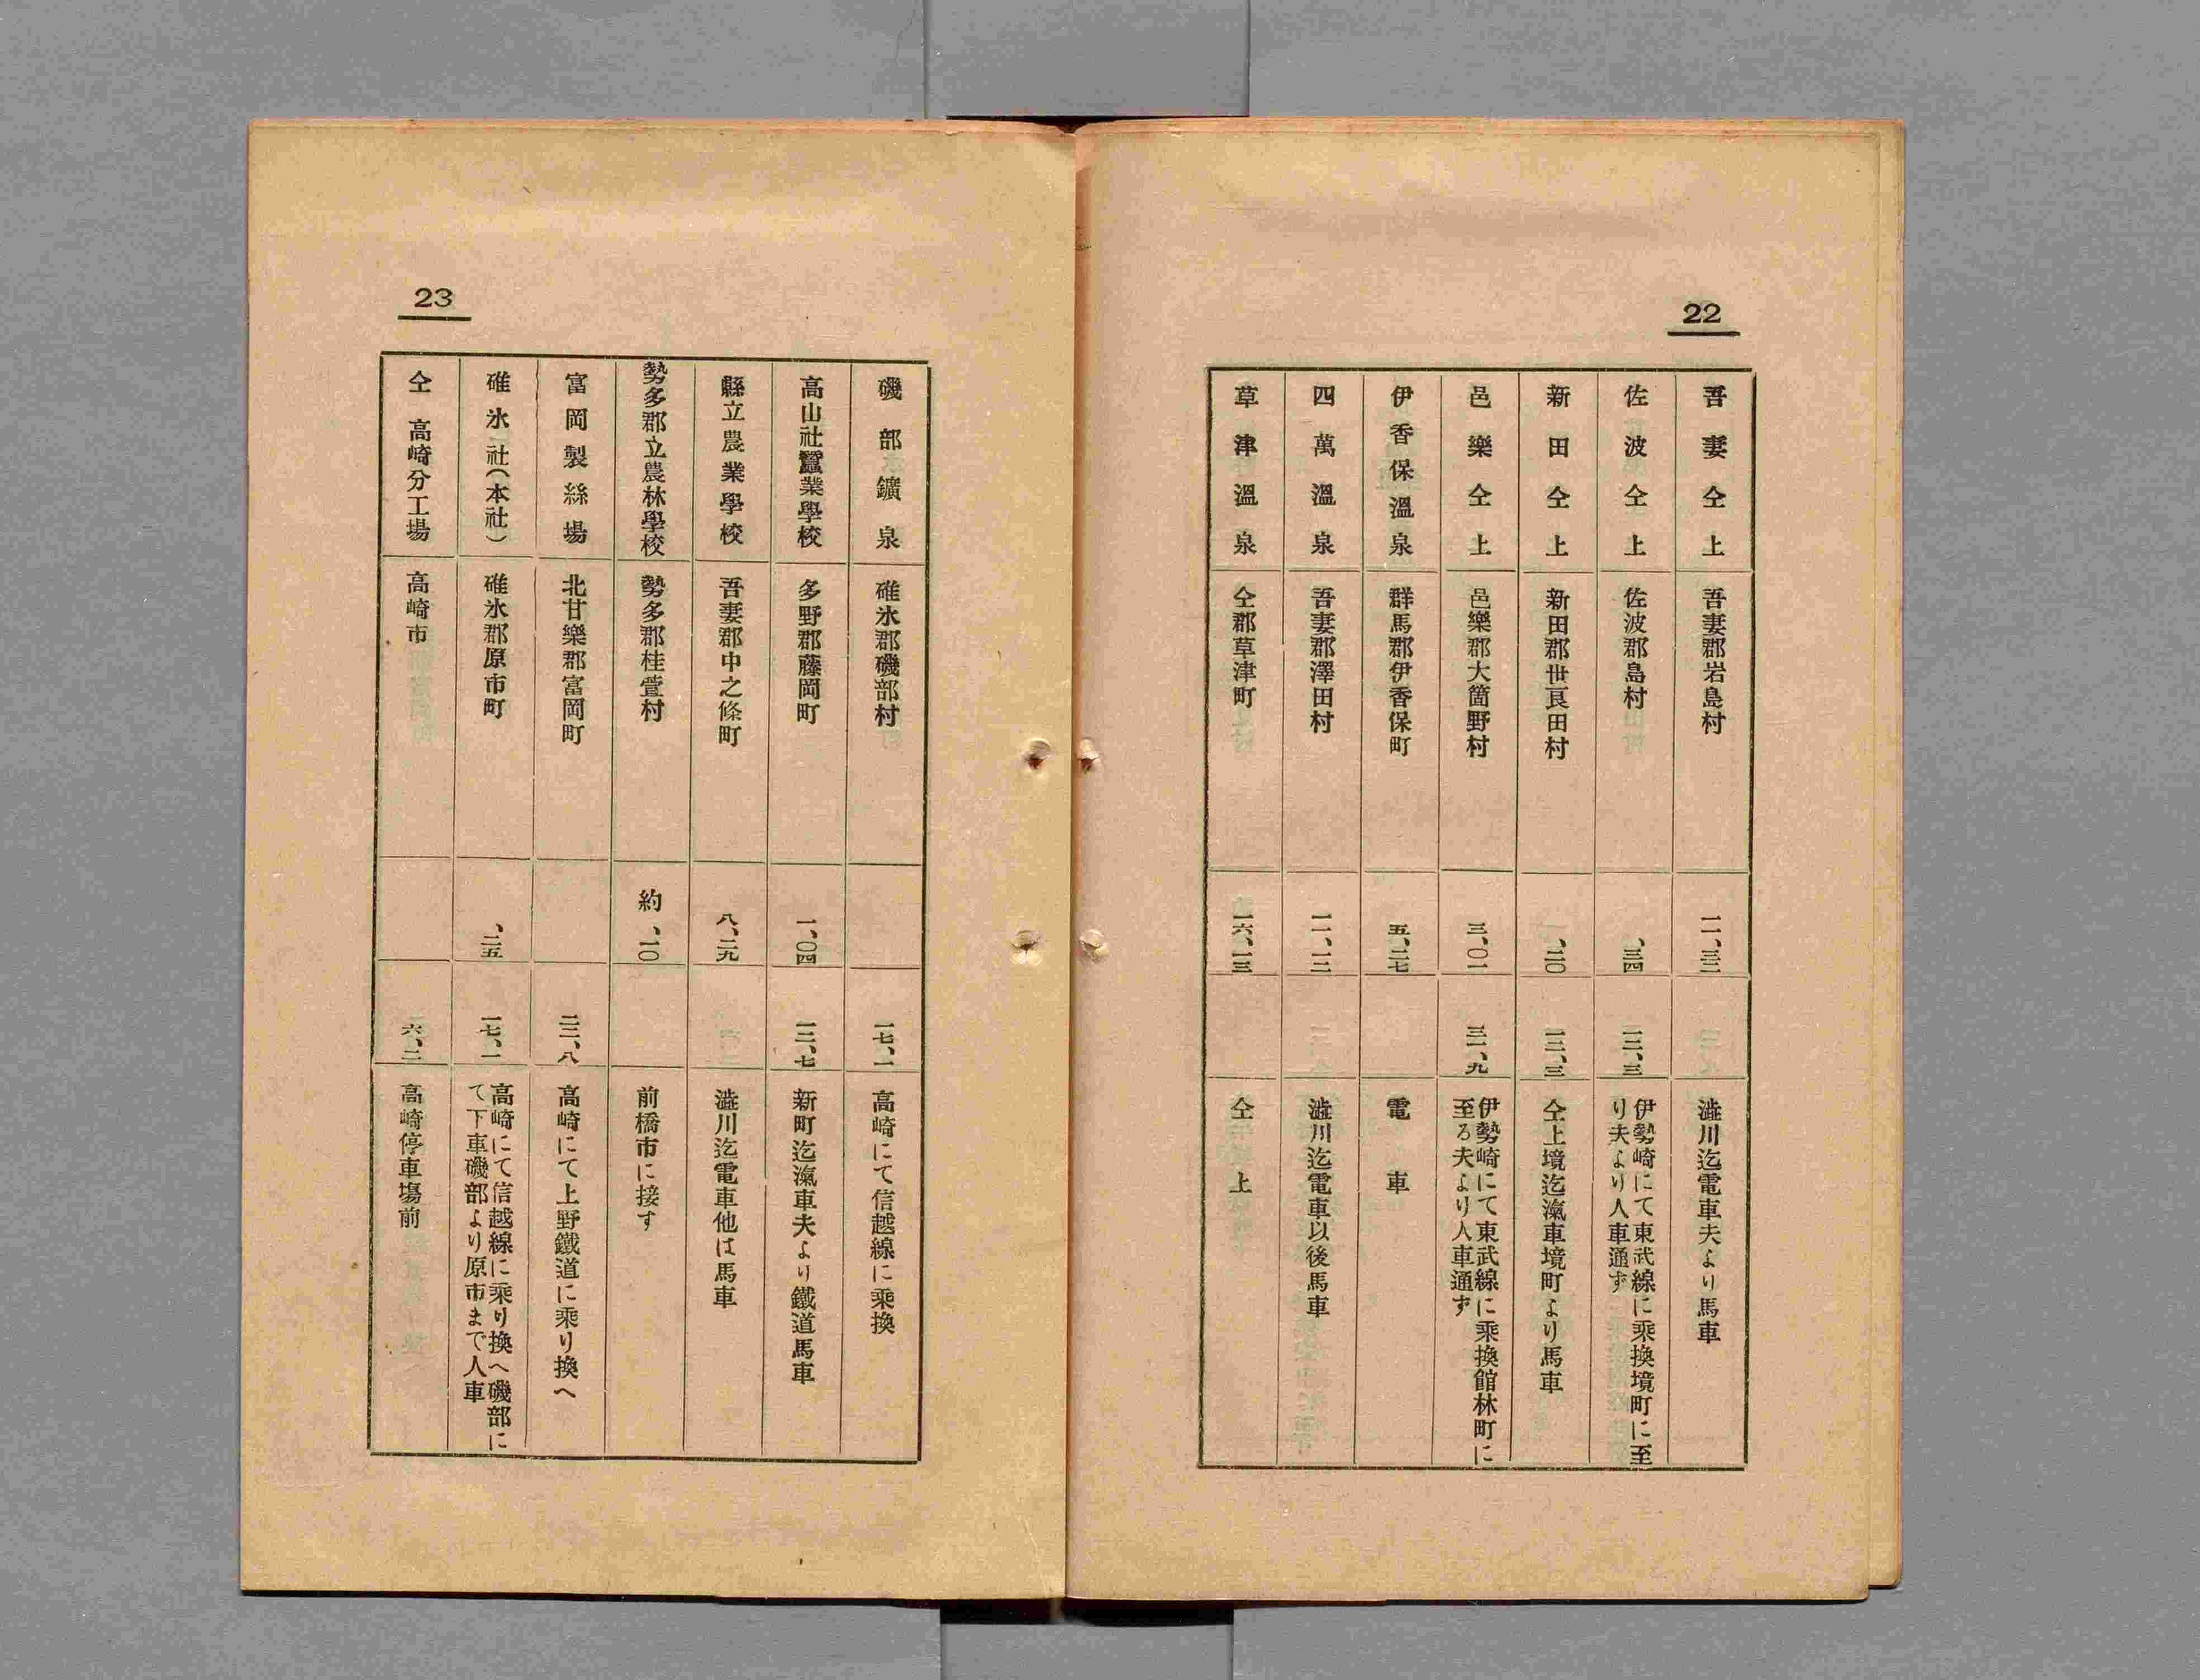 22
吾妻仝上 吾妻郡岩島村 一一、三二 澁川迄電車夫より馬車
佐波仝上 佐波郡島村 、三四 一二、三 伊勢崎にて東武線に乘換境町に至
り夫より人車通ず
新田仝上 新田郡世良田村 、二〇 一二、三 仝上境迄滊車境町より馬車
邑樂仝上 邑樂郡大箇野村 三、〇一 三一、九 伊勢崎にて東武線に乘換館林町に
至る夫より人車通ず
伊香保溫泉 群馬郡伊香保町 五、二七 電車
四萬溫泉 吾妻郡澤田村 一一、一二 澁川迄電車以後馬車
草津溫泉 仝郡草津町 一六、一三 仝上
23
磯部鑛泉 碓氷郡磯部村 一七、一 高崎にて信越線に乘換
高山社蠶業學校 多野郡藤岡町 一、〇四 一二、七 新町迄滊車夫より鐵道馬車
縣立農業學校 吾妻郡中之條町 八、二九 澁川迄電車他は馬車
勢多郡立農林學校 勢多郡桂萱村 約、一〇 前橋市に接す
富岡製絲場 北甘樂郡富岡町 二二、八 高崎にて上野鐵道に乘り換へ
碓氷社(本社) 碓氷郡原市町 、二五 一七、一 高崎にて信越線に乘り換へ磯部に
て下車磯部より原市まで人車
仝高崎分工場 高崎市 六、二 高崎停車塲前